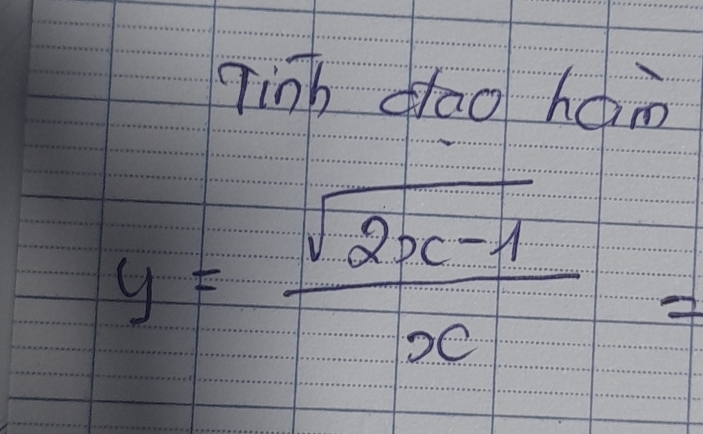 Tính đạo hàm
y = √(2x-1) / x =